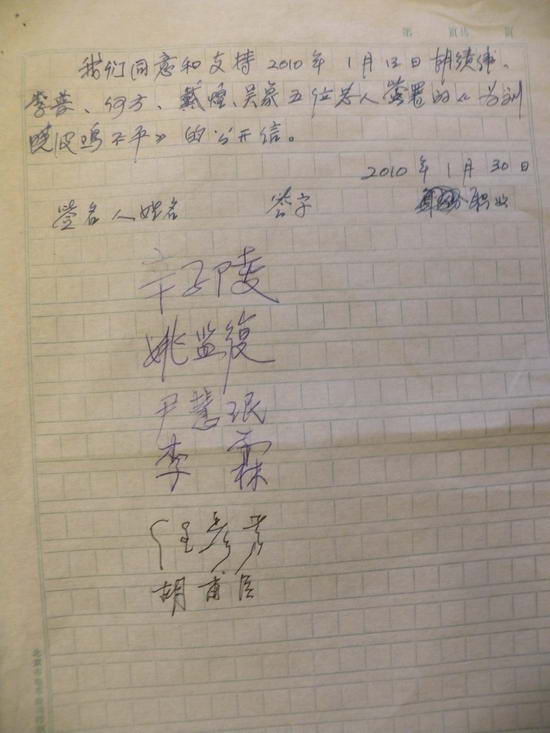 第 页 共 页
我们同意和支持2010年1月13日胡绩伟、
李普、何方、戴煌、吴象五位老人签署的《为刘
晓波鸣不平》的公开信。
2010年1月30日
签名人姓名 签字 职业
辛子陵
姚监復
尹慧珉
李霖
任彦芳
胡甫臣